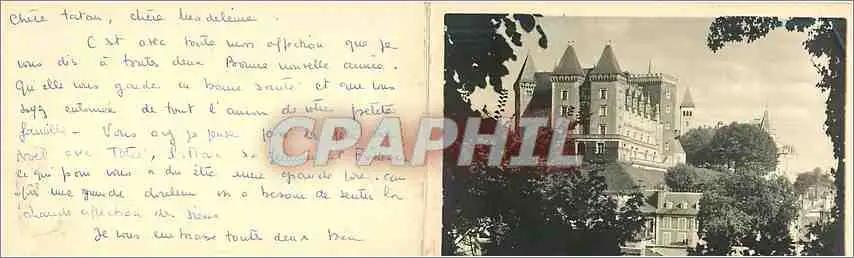 Chère tatan, chère Madeleine.
C'est avec toute mon affection que je
vous dis à toutes deux Bonne nouvelle année.
Qu'elle vous garde en bonne santé et que vous
soyez entourée de tout l'amour de votre petite
famille - Vous avez je pense
Noël avec
ce qui pour vous a du être une grande joie. car
une grande douleur on a besoin de sentir la
chaude affection des siens
Je vous embrasse toutes deux bien
CPAPHIL